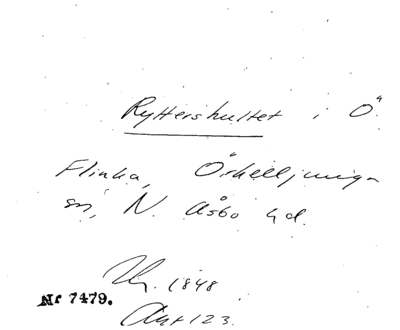 Ryttershultet i Ö
Flinka, Örkelljunga
sn, N. Åsbo hd.
1848
Nr 7479.
Akt 123.